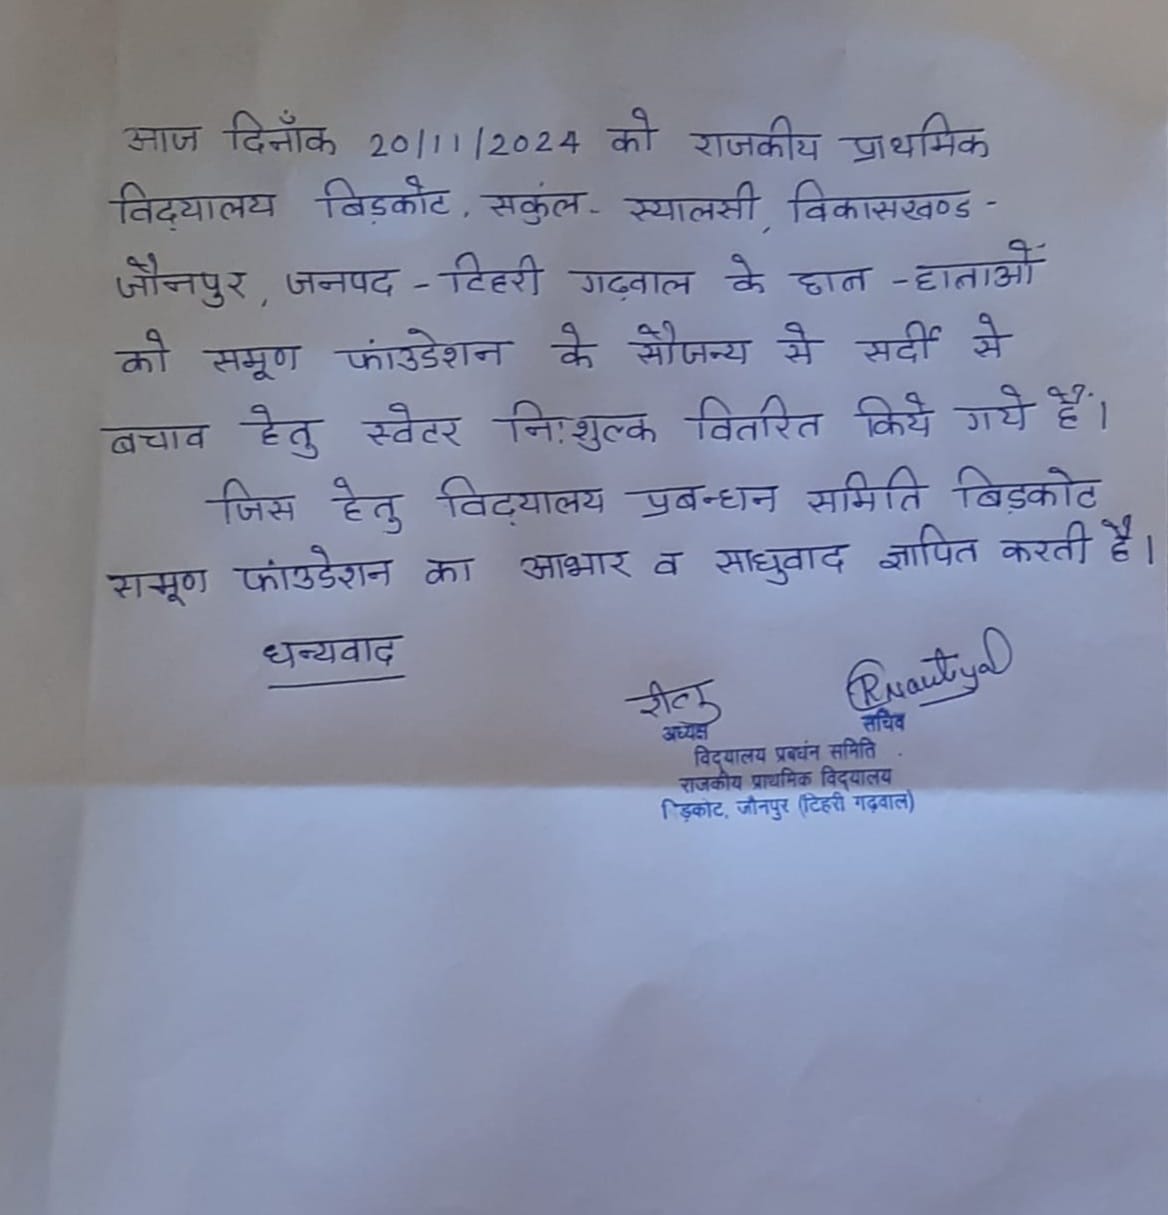 आज दिनाँक 20/11/2024 को राजकीय प्राथमिक
विद्यालय बिड़कोट, सकुंल- स्यालसी, विकासखण्ड-
जौनपुर, जनपद - टिहरी गढ़वाल के छात्र - छात्राओं
को समूण फांउडेशन के सौजन्य से सर्दी से
बचाव हेतु स्वेटर निःशुल्क वितरित किये गये हैं।
जिस हेतु विद्यालय प्रबन्धन समिति बिड़कोट
समूण फांउडेशन का आभार व साधुवाद ज्ञापित करती है।
धन्यवाद
रीतू RNautiyal
अध्यक्ष सचिव
विद्यालय प्रबंधन समिति
राजकीय प्राथमिक विद्यालय
बिड़कोट, जौनपुर (टिहरी गढ़वाल)